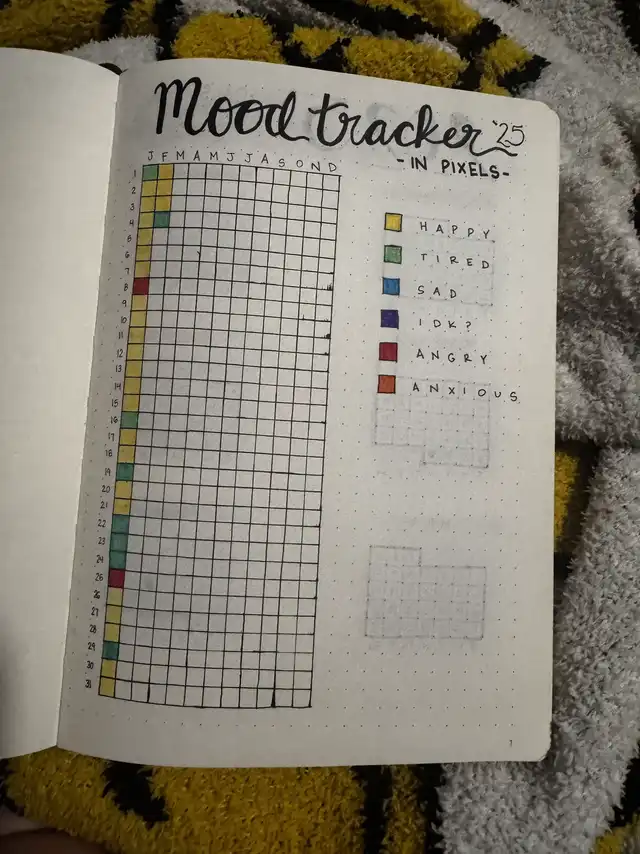 Mood tracker '25
- IN PIXELS -
J F M A M J J A S O N D
1
2
3
4
5
6
7
8
9
10
11
12
13
14
15
16
17
18
19
20
21
22
23
24
25
26
27
28
29
30
31
HAPPY
TIRED
SAD
IDK?
ANGRY
ANXIOUS
1